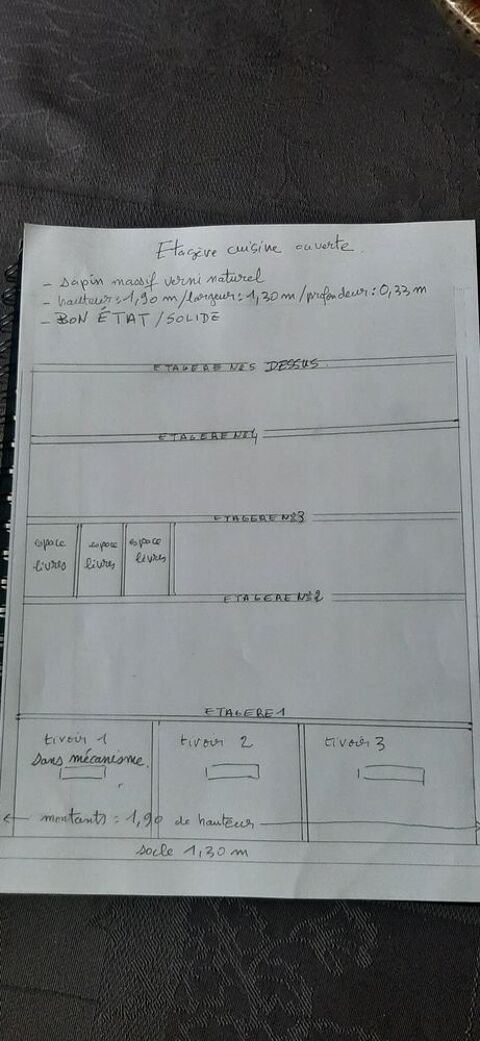 Etagère cuisine ouverte.
- sapin massif verni naturel
- hauteur : 1,90 m / largeur : 1,30 m / profondeur : 0,33 m
- BON ÉTAT / SOLIDE
ETAGERE N°5 DESSUS.
ETAGERE N°4
ETAGERE N°3
espace livres
espace livres
espace livres
ETAGERE N°2
ETAGERE 1
tiroir 1
sans mécanisme.
tiroir 2
tiroir 3
montants = 1,90 de hauteur
socle 1,30 m